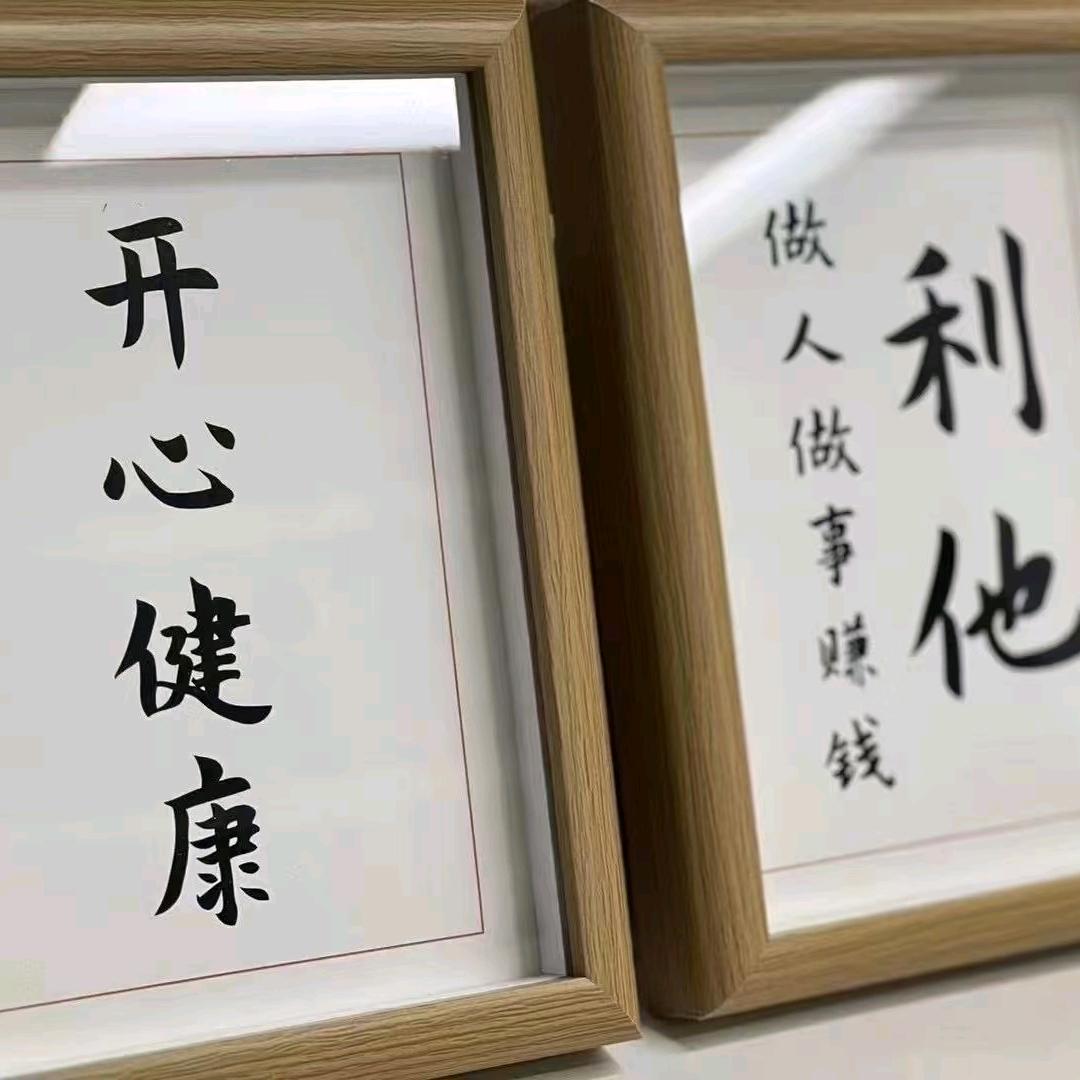 开心健康
利他
做人做事赚钱